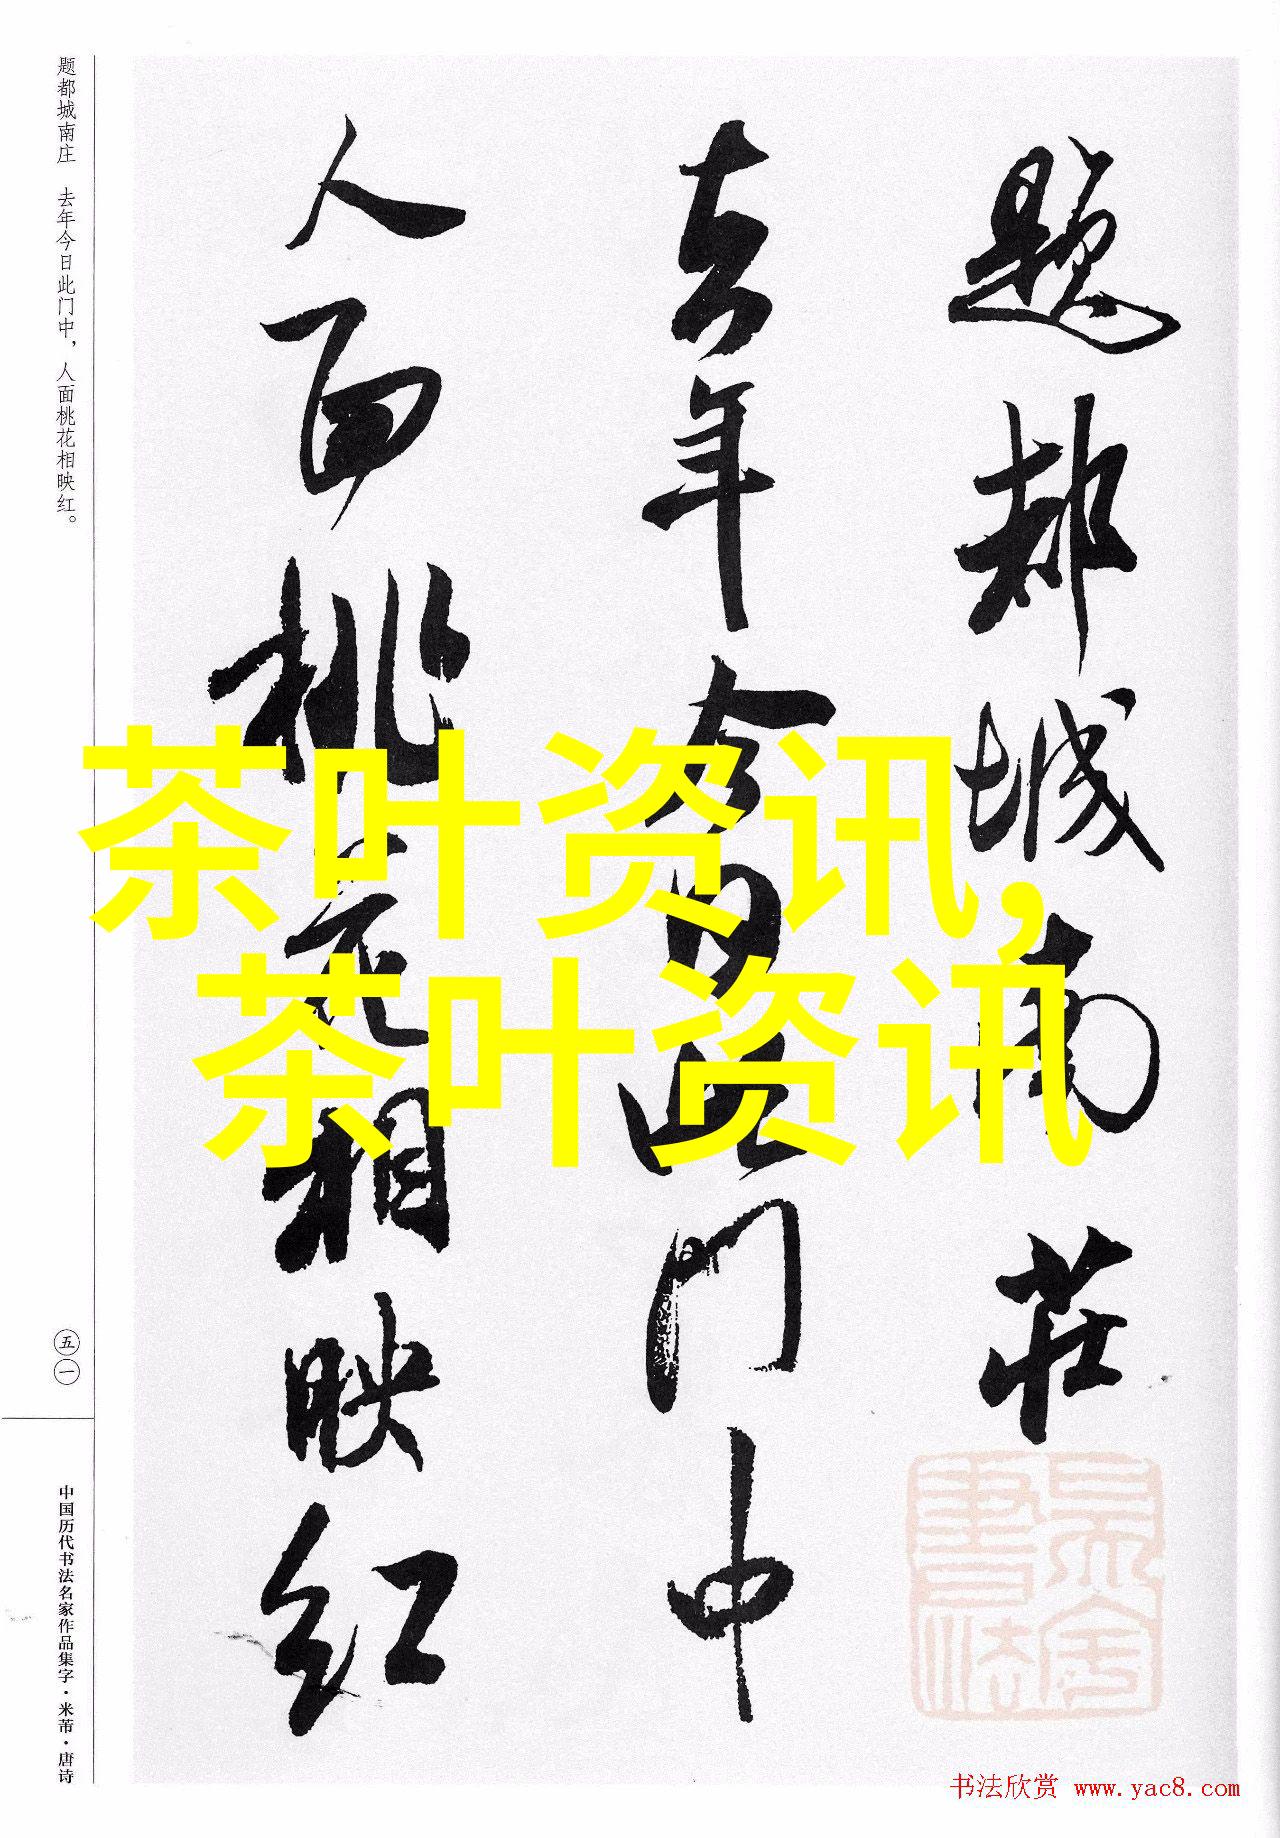 题都城南莊
去年今日此门中
人面桃花相映红
题都城南庄 去年今日此门中，人面桃花相映红。
五一
中国历代书法名家作品集字·米芾·唐诗
茶叶资讯，
茶叶资讯
书法欣赏 www.yac8.com